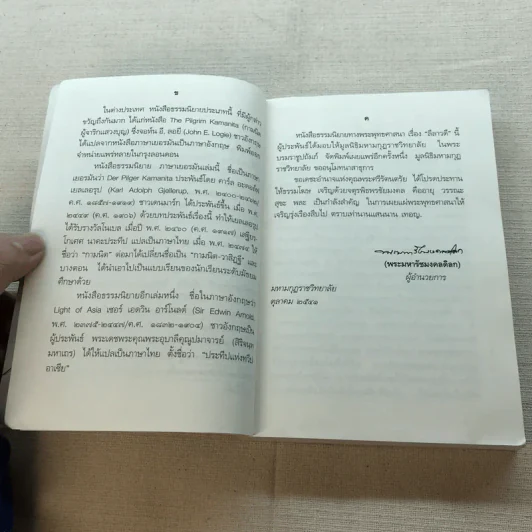 ข
ในต่างประเทศ หนังสือธรรมนิยายประเภทนี้ ที่มีผู้กล่าว
ขวัญถึงกันมาก ได้แก่หนังสือ The Pilgrim Kamanita (กามนิต
ผู้จาริกแสวงบุญ) ซึ่งจอห์น อี. ลอยี (John E. Logie) ชาวอังกฤษ
ได้แปลจากหนังสือภาษาเยอรมันเป็นภาษาอังกฤษ พิมพ์ออก
จำหน่ายแพร่หลายในกรุงลอนดอน
หนังสือธรรมนิยาย ภาษาเยอรมันเล่มนี้ ชื่อเป็นภาษา
เยอรมันว่า Der Pilger Kamanita ประพันธ์โดย คาร์ล อะดอล์ฟ
เยลเลอรูป (Karl Adolph Gjellerup, พ.ศ. ๒๔๐๐-๒๔๖๒/
ค.ศ. ๑๘๕๗-๑๙๑๙) ชาวเดนมาร์ก ได้ประพันธ์ขึ้น เมื่อ พ.ศ.
๒๔๔๙ (ค.ศ. ๑๙๐๖) ด้วยบทประพันธ์เรื่องนี้ ทำให้เยลเลอรูป
ได้รับรางวัลโนเบล เมื่อปี พ.ศ. ๒๔๖๐ (ค.ศ. ๑๙๑๗) เสฐียร
โกเศศ นาคะประทีป แปลเป็นภาษาไทย เมื่อ พ.ศ. ๒๔๗๓ ให้
ชื่อว่า "กามนิต" ต่อมาได้เปลี่ยนชื่อเป็น "กามนิต-วาสิฏฐี" และ
บางตอน ได้นำเอาไปเป็นแบบเรียนของนักเรียนระดับมัธยม
ศึกษาด้วย
หนังสือธรรมนิยายอีกเล่มหนึ่ง ชื่อในภาษาอังกฤษว่า
Light of Asia เซอร์ เอดวิน อาร์โนลด์ (Sir Edwin Arnold,
พ.ศ. ๒๓๗๕-๒๔๔๗/ค.ศ. ๑๘๓๒-๑๙๐๔) ชาวอังกฤษเป็น
ผู้ประพันธ์ พระเดชพระคุณพระอุบาลีคุณูปมาจารย์ (สิริจนฺโท
มหาเถร) ได้ให้แปลเป็นภาษาไทย ตั้งชื่อว่า "ประทีปแห่งทวีป
อาเซีย"
ค
หนังสือธรรมนิยายทางพระพุทธศาสนา เรื่อง "ลีลาวดี" นี้
ผู้ประพันธ์ได้มอบให้มูลนิธิมหามกุฏราชวิทยาลัย ในพระ
บรมราชูปถัมภ์ จัดพิมพ์เผยแพร่อีกครั้งหนึ่ง มูลนิธิมหามกุฏ
ราชวิทยาลัย ขออนุโมทนาสาธุการ
ขอเดชะอำนาจแห่งคุณพระศรีรัตนตรัย ได้โปรดประทาน
ให้ธรรมโฆษ เจริญด้วยจตุรพิธพรชัยมงคล คืออายุ วรรณะ
สุขะ พละ เป็นกำลังสำคัญ ในการเผยแผ่พระพุทธศาสนาให้
เจริญรุ่งเรืองสืบไป ตราบเท่านานแสนนาน เทอญ.
(พระมหารัชมงคลดิลก)
ผู้อำนวยการ
มหามกุฏราชวิทยาลัย
ตุลาคม ๒๕๔๑